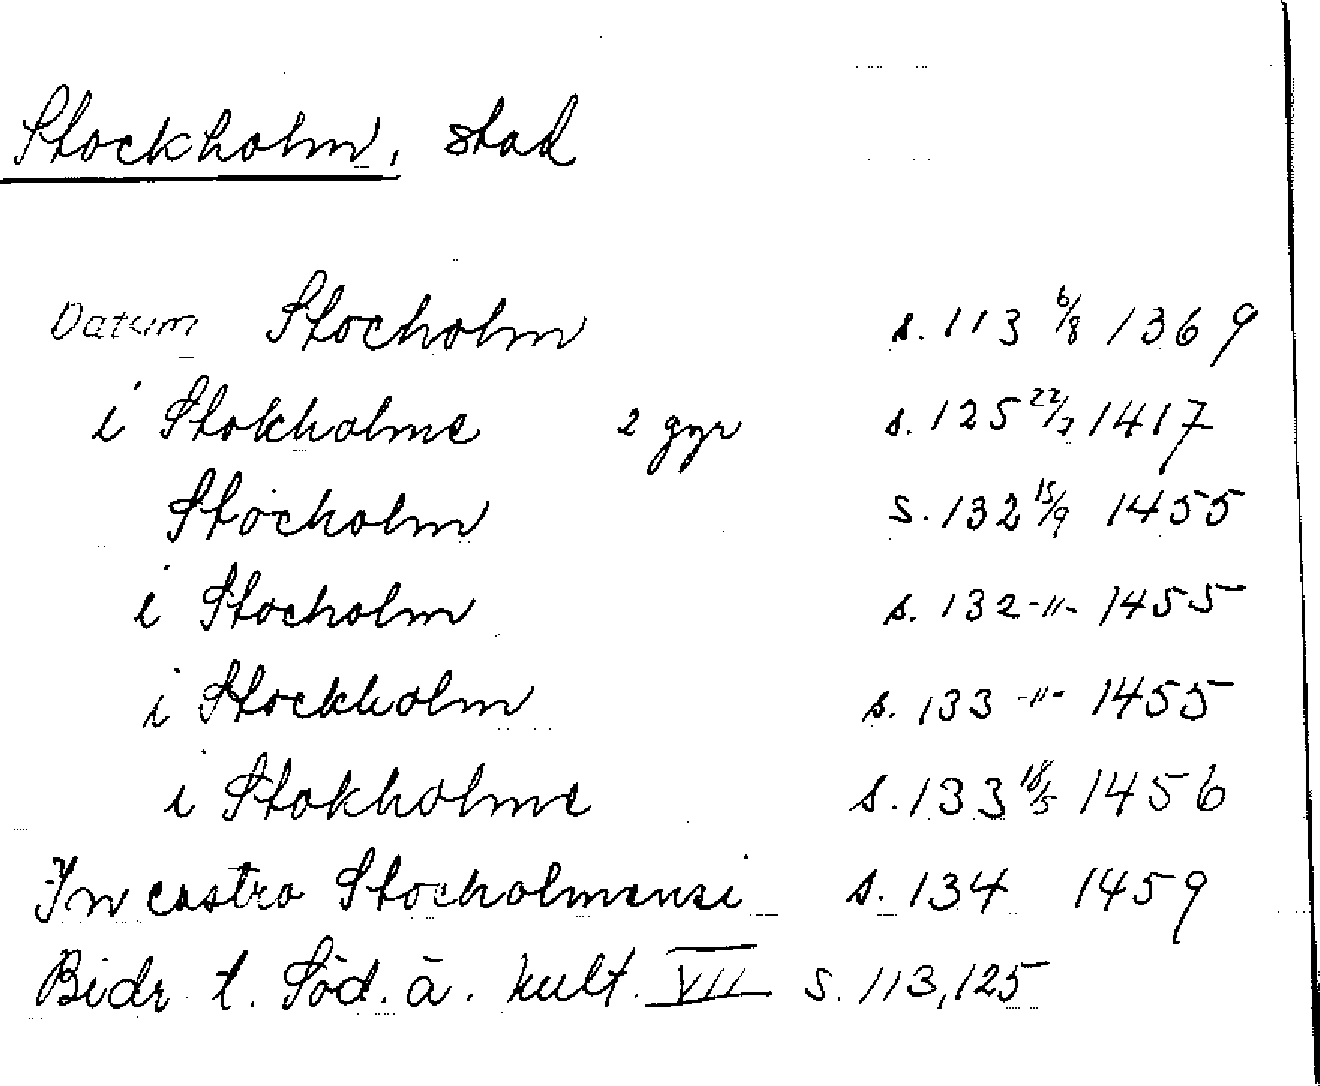 Stockholm, stad
Datum Stocholm s. 113 6/8 1369
i Stokholme 2 ggr s. 125 22/7 1417
Stocholm s. 132 15/9 1455
i Stocholm s. 132 -"- 1455
i Stockholm s. 133 -"- 1455
i Stokholme s. 133 18/5 1456
In castro Stocholmensi s. 134 1459
Bidr t. Söd. ä. kult. VII s. 113, 125